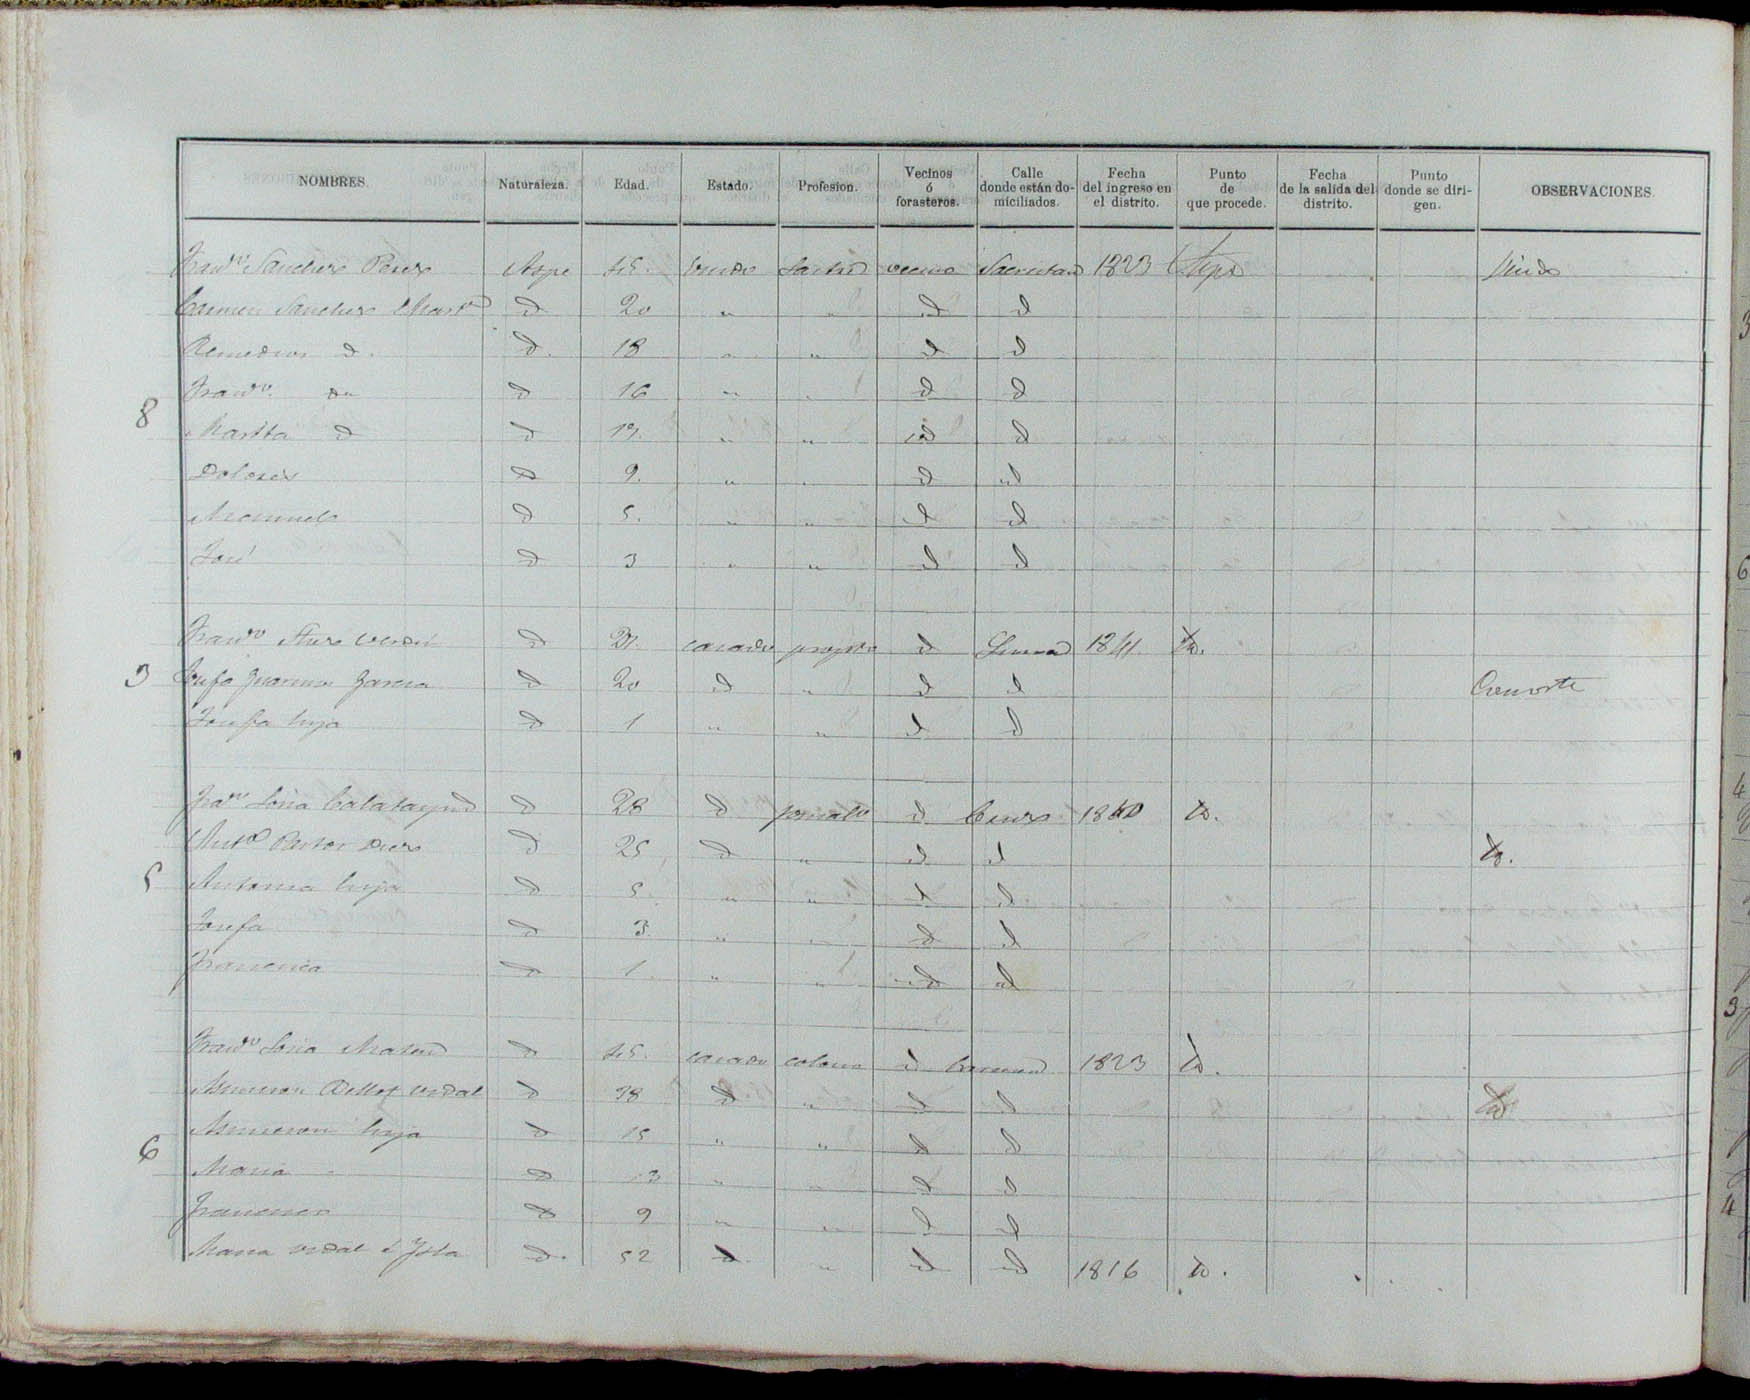 NOMBRES. Naturaleza. Edad. Estado. Profesion. Vecinos ó forasteros. Calle donde están domiciliados. Fecha del ingreso en el distrito. Punto de que procede. Fecha de la salida del distrito. Punto donde se dirigen. OBSERVACIONES.
Franco Sanchez Perez Aspe 45. viudo vecino 1823 Aspe viudo
Carmen Sanchez d 20 " " d d
Remedios d. d. 18 " " d d
Franco. d 16 " " d d
8
Martha d d 12. " " id d
Dolores d 9. " " d id
Manuela d 5. " " d d
José d 3 " " d d
Franco d 21. casado d 1841. id.
3 Josefa Garcia d 20 d " d d Consorte
Josefa hija d 1 " " d d
Franco Soria Calatayud d 28 d jornalo d Cruz 1840 id.
Anta Pastor d 25 d " d d id.
5 Antonia hija d 5 " " d d
Josefa d 3. " " d d
Francisca d 1. " " id id
Franco Soria d 45. casado colono d 1823 id.
Asuncion Vidal d 38 d " d d id
Asuncion hija d 15 " " d d
6
Maria d 13 " " d d
Francisco d 9 " " d d
Maria Vidal d. 52 d. " d d 1816 id.